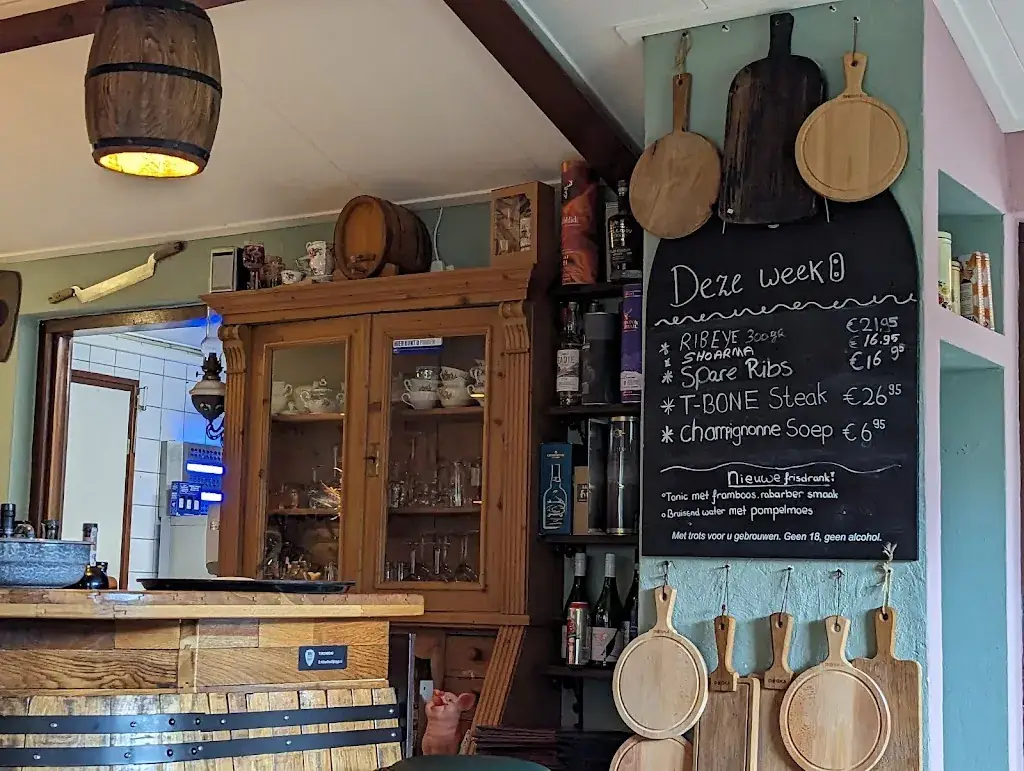 Deze week
* RIBEYE 300gr €21,95
* SHOARMA €16.95
* Spare Ribs €16 95
* T-BONE Steak €26 95
* Chamignonne Soep €6 95
Nieuwe frisdrank!
° Tonic met framboos. rabarber smaak
° Bruisend water met pompelmoes
Met trots voor u gebrouwen. Geen 18, geen alcohol.